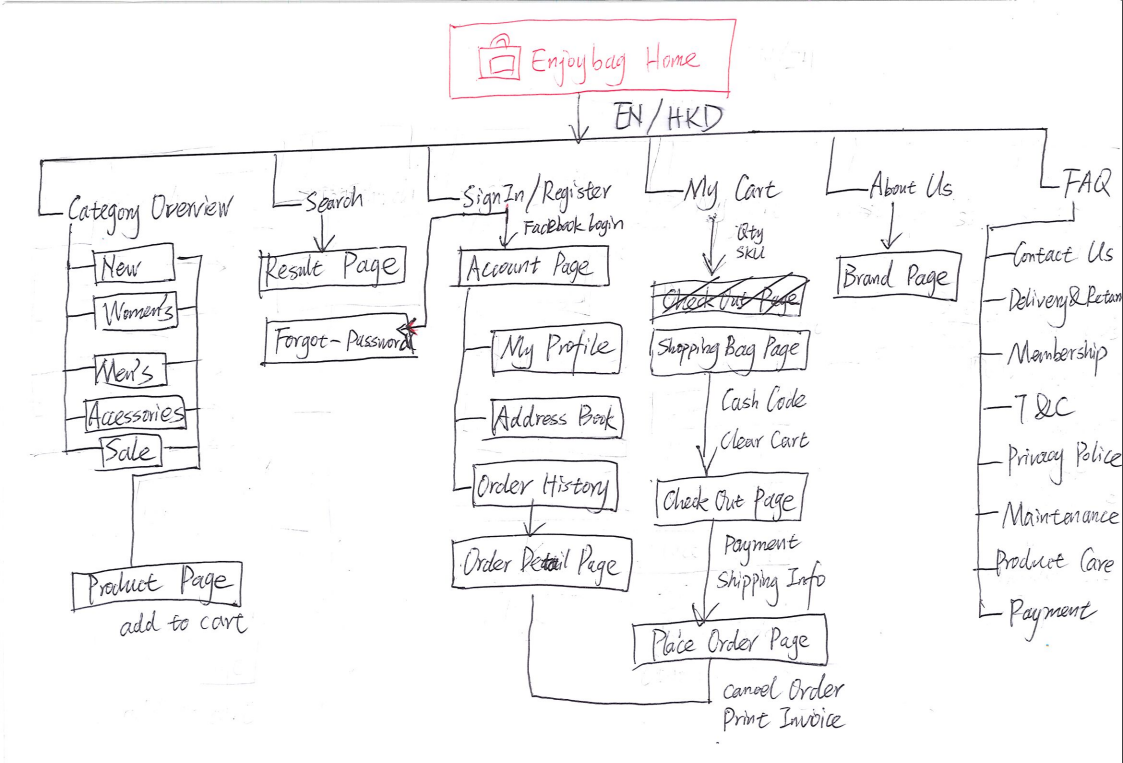 Enjoybag Home
EN/HKD
Category Overview
New
Women's
Men's
Accessories
Sale
Product Page
add to cart
Search
Result Page
Forgot-Password
Sign In/Register
Facebook Login
Account Page
My Profile
Address Book
Order History
Order Detail Page
My Cart
Qty
SKU
Check Out Page
Shopping Bag Page
Cash Code
Clear Cart
Check Out Page
Payment
Shipping Info
Place Order Page
Cancel Order
Print Invoice
About Us
Brand Page
FAQ
Contact Us
Delivery&Retan
Membership
T&C
Privacy Police
Maintenance
Product Care
Payment